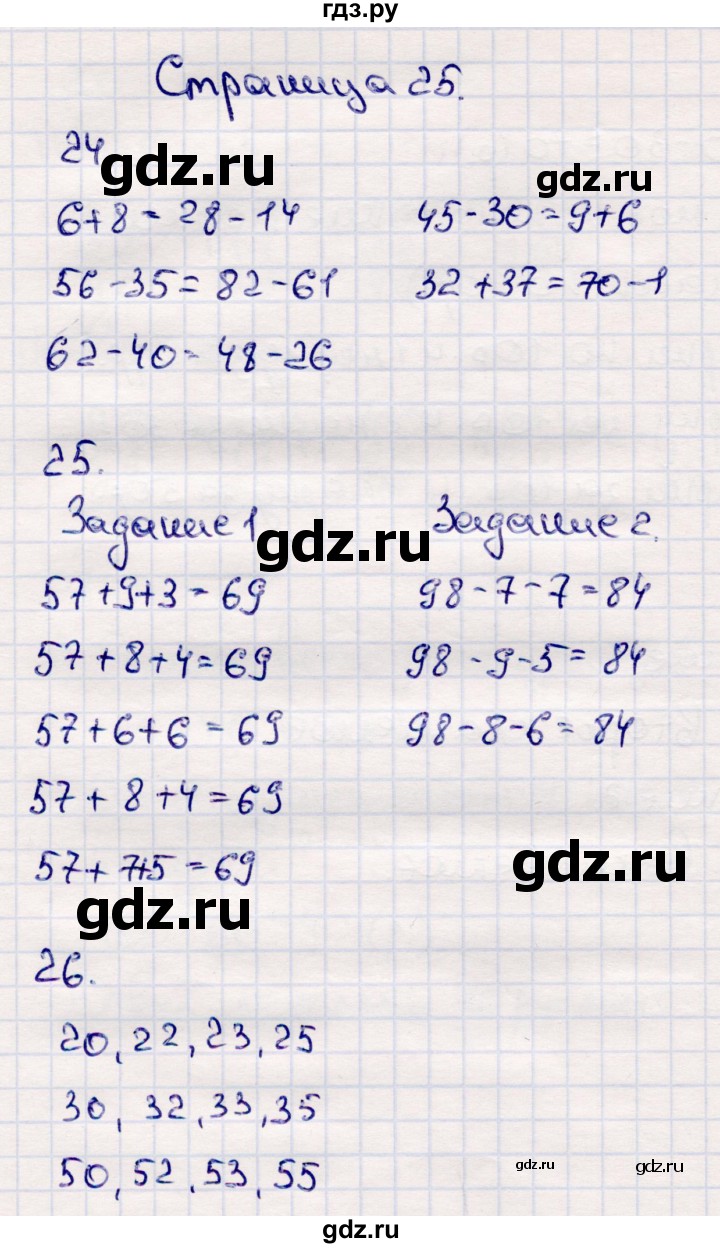 гдз.ру
Страница 25.
24
gdz.ru
gdz.ru
6+8=28-14 45-30=9+6
56-35=82-61 32+37=70-1
62-40=48-26
25.
Задание 1 Задание 2.
gdz.ru
57+9+3=69 98-7-7=84
57+8+4=69 98-9-5=84
57+6+6=69 98-8-6=84
57+8+4=69
57+7+5=69
gdz.ru
gdz.ru
26.
20, 22, 23, 25
30, 32, 33, 35
50, 52, 53, 55
gdz.ru
gdz.ru
gdz.ru